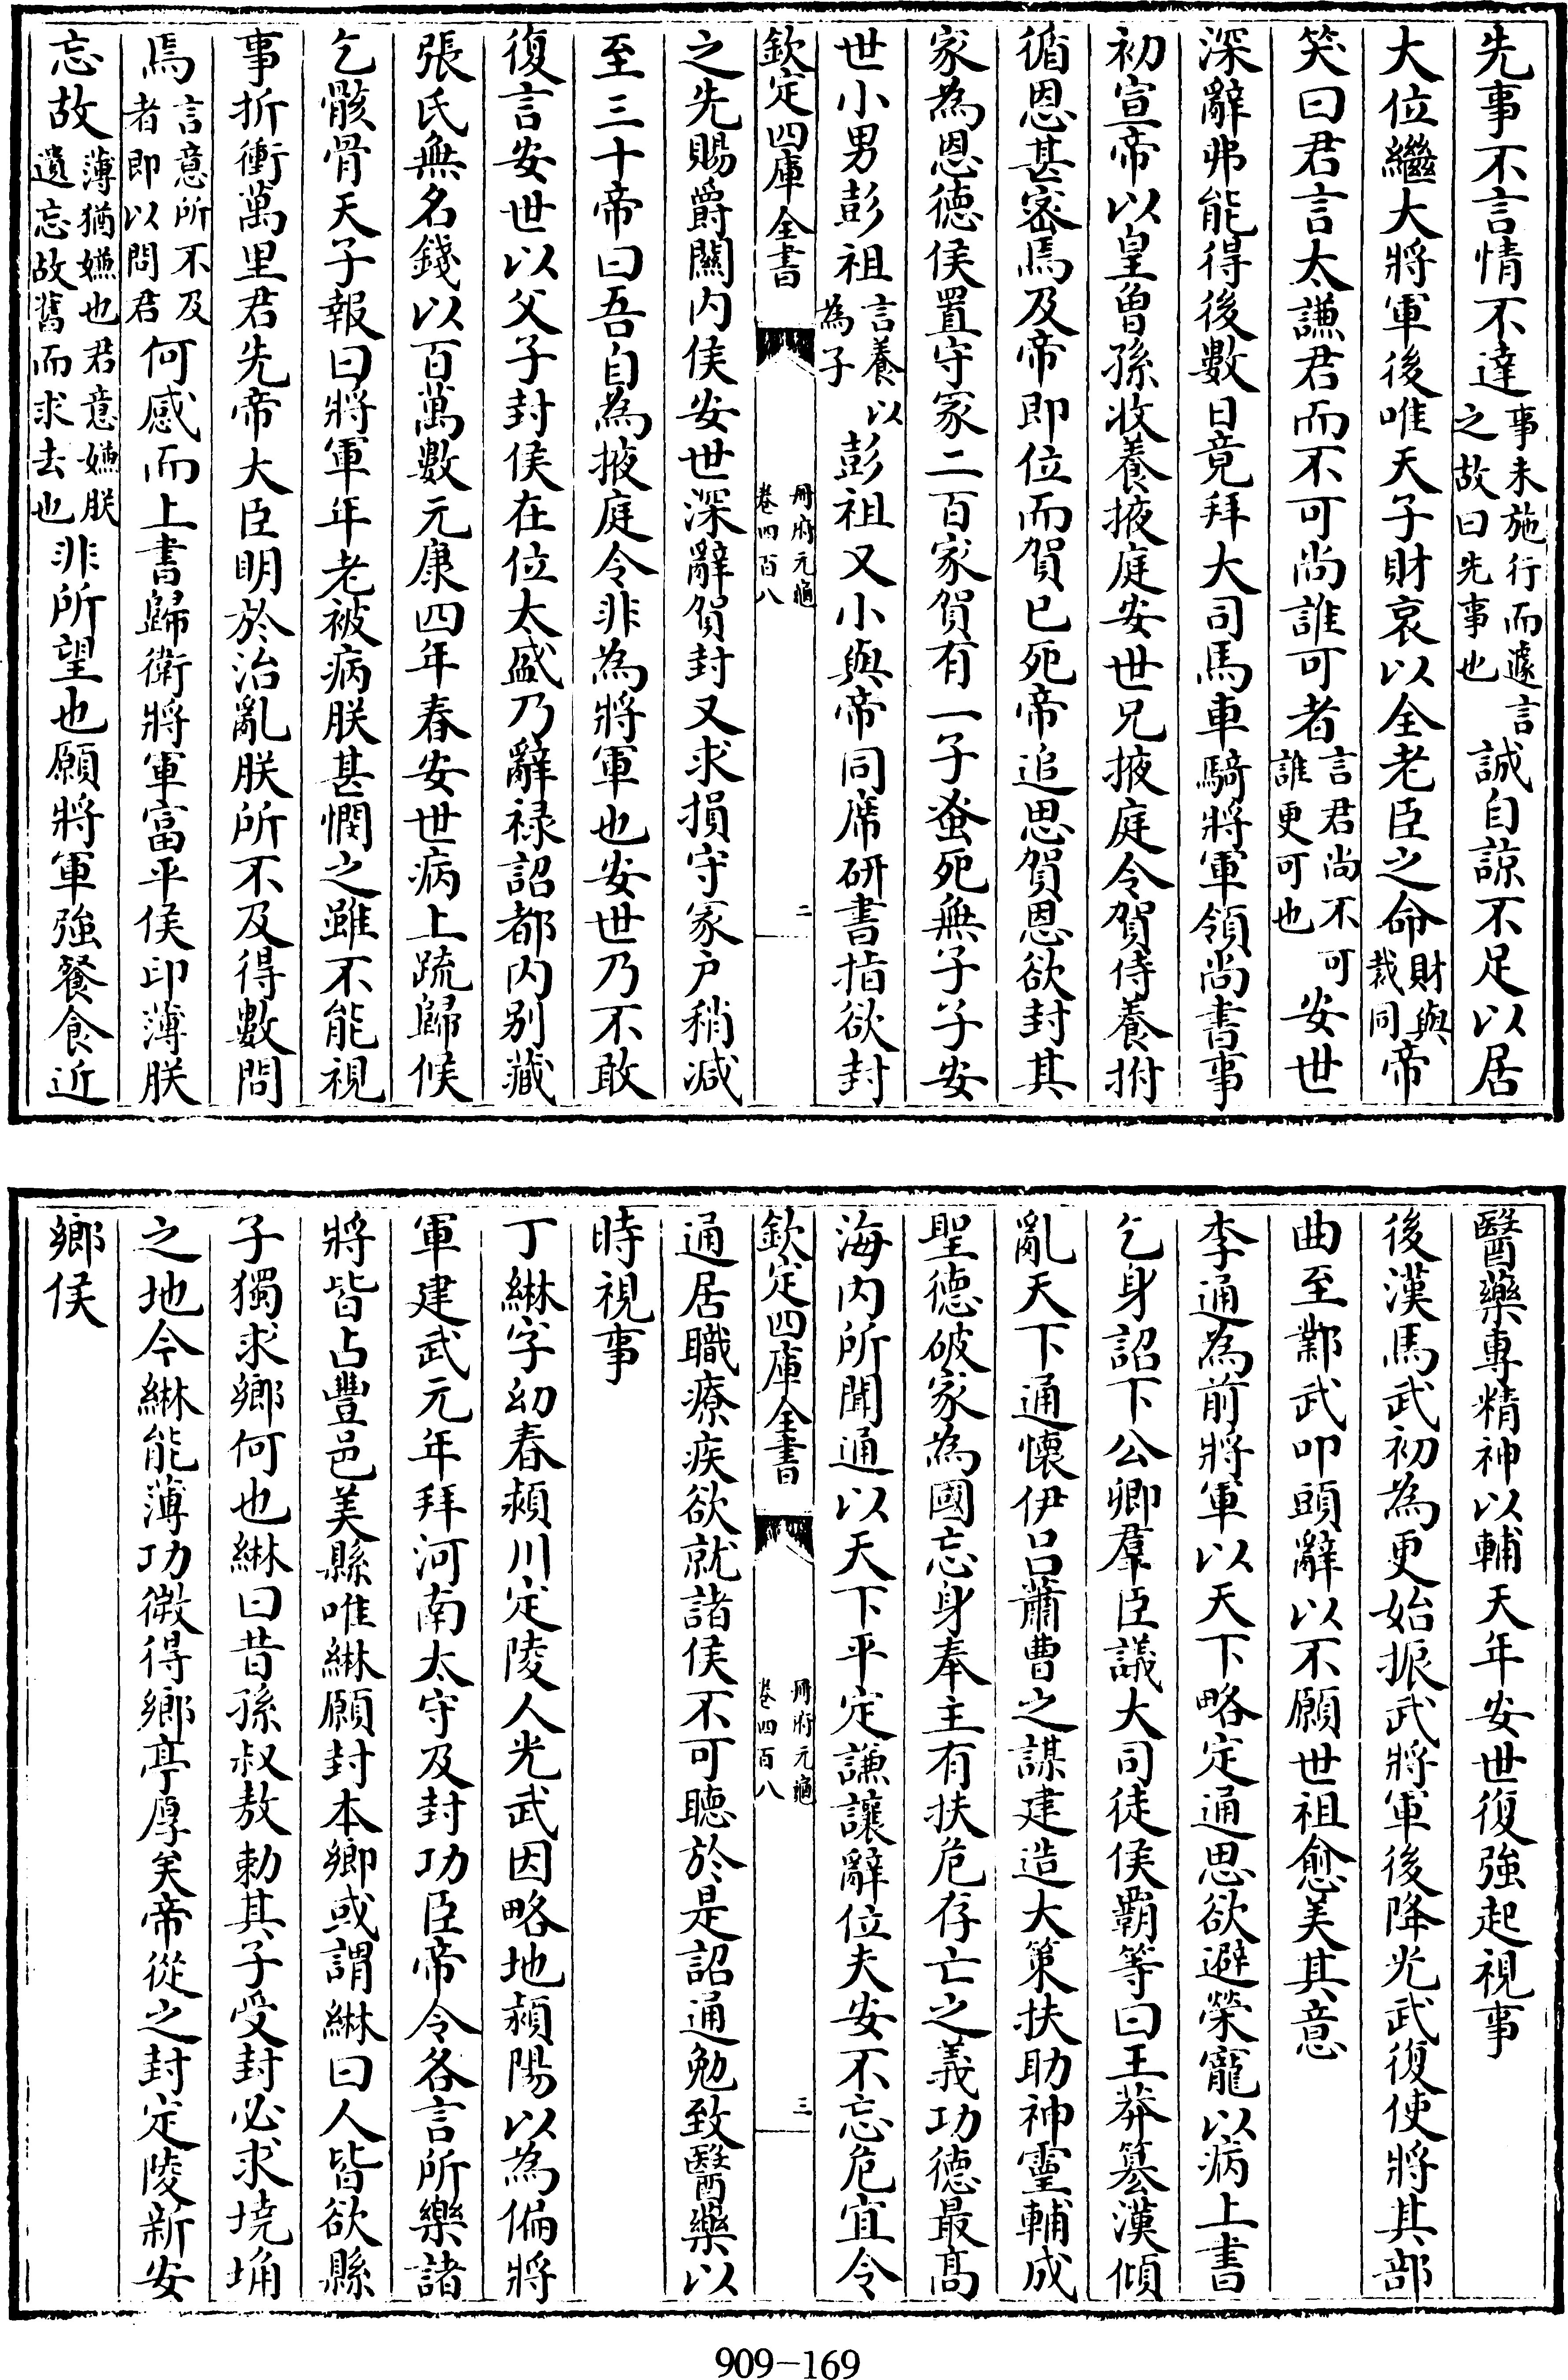 先事不言情不達事未施行而遽言之故曰先事也誠自諒不足以居
大位繼大將軍後唯天子財哀以全老臣之命財與裁同帝
笑曰君言太謙君而不可尚誰可者言君尚不可誰更可也安世
深辭弗能得後數日竟拜大司馬車騎將軍領尚書事
初宣帝以皇曾孫收養掖庭安世兄掖庭令賀侍養拊
循恩甚宻焉及帝即位而賀已死帝追思賀恩欲封其
家為恩德侯置守冢二百家賀有一子蚤死無子子安
世小男彭祖言養以為子彭祖又小與帝同席研書指欲封
欽定四庫全書 冊府元龜卷四百八 二
之先賜爵關内侯安世深辭賀封又求損守冢户稍減
至三十帝曰吾自為掖庭令非為將軍也安世乃不敢
復言安世以父子封侯在位太盛乃辭祿詔都内别藏
張氏無名錢以百萬數元康四年春安世病上疏歸侯
乞骸骨天子報曰將軍年老被病朕甚憫之雖不能視
事折衝萬里君先帝大臣明於治亂朕所不及得數問
焉言意所不及者即以問君何感而上書歸衛將軍富平侯印薄朕
忘故薄猶嫌也君意嫌朕遺忘故舊而求去也非所望也願將軍強餐食近
醫藥專精神以輔天年安世復強起視事
後漢馬武初為更始振武將軍後降光武復使將其部
曲至鄴武叩頭辭以不願世祖愈美其意
李通為前將軍以天下略定通思欲避榮寵以病上書
乞身詔下公卿羣臣議大司徒侯霸等曰王莽篡漢傾
亂天下通懷伊吕蕭曹之謀建造大策扶助神靈輔成
聖德破家為國忘身奉主有扶危存亡之義功德最髙
海内所聞通以天下平定謙讓辭位夫安不忘危宜令
欽定四庫全書 冊府元龜卷四百八 三
通居職療疾欲就諸侯不可聽於是詔通勉致醫藥以
時視事
丁綝字幼春潁川定陵人光武因略地潁陽以為偏將
軍建武元年拜河南太守及封功臣帝令各言所樂諸
將皆占豐邑美縣唯綝願封本鄉或謂綝曰人皆欲縣
子獨求鄉何也綝曰昔孫叔敖勅其子受封必求墝埆
之地今綝能薄功微得鄉亭厚矣帝從之封定陵新安
鄉侯
909-169